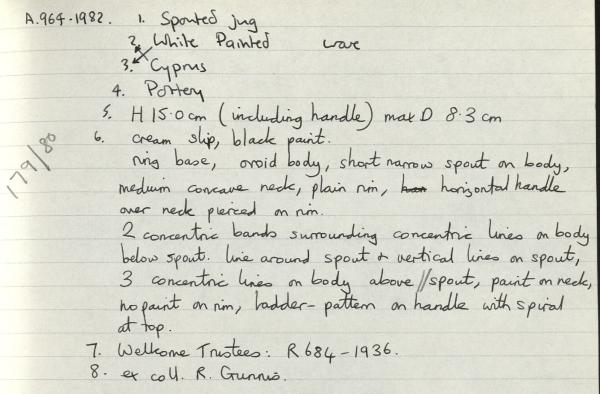 A.964-1982. 1. Spouted jug
2. White Painted ware
3. Cyprus
4. Pottery
5. H 15.0 cm (including handle) max D 8.3 cm
6. cream slip, black paint.
ring base, ovoid body, short narrow spout on body,
medium concave neck, plain rim, horizontal handle
over neck pierced on rim.
2 concentric bands surrounding concentric lines on body
below spout. line around spout & vertical lines on spout,
3 concentric lines on body above // spout, paint on neck,
no paint on rim, ladder-pattern on handle with spiral
at top.
7. Wellcome Trustees: R 684-1936.
8. ex coll. R. Gunnis.
179/80